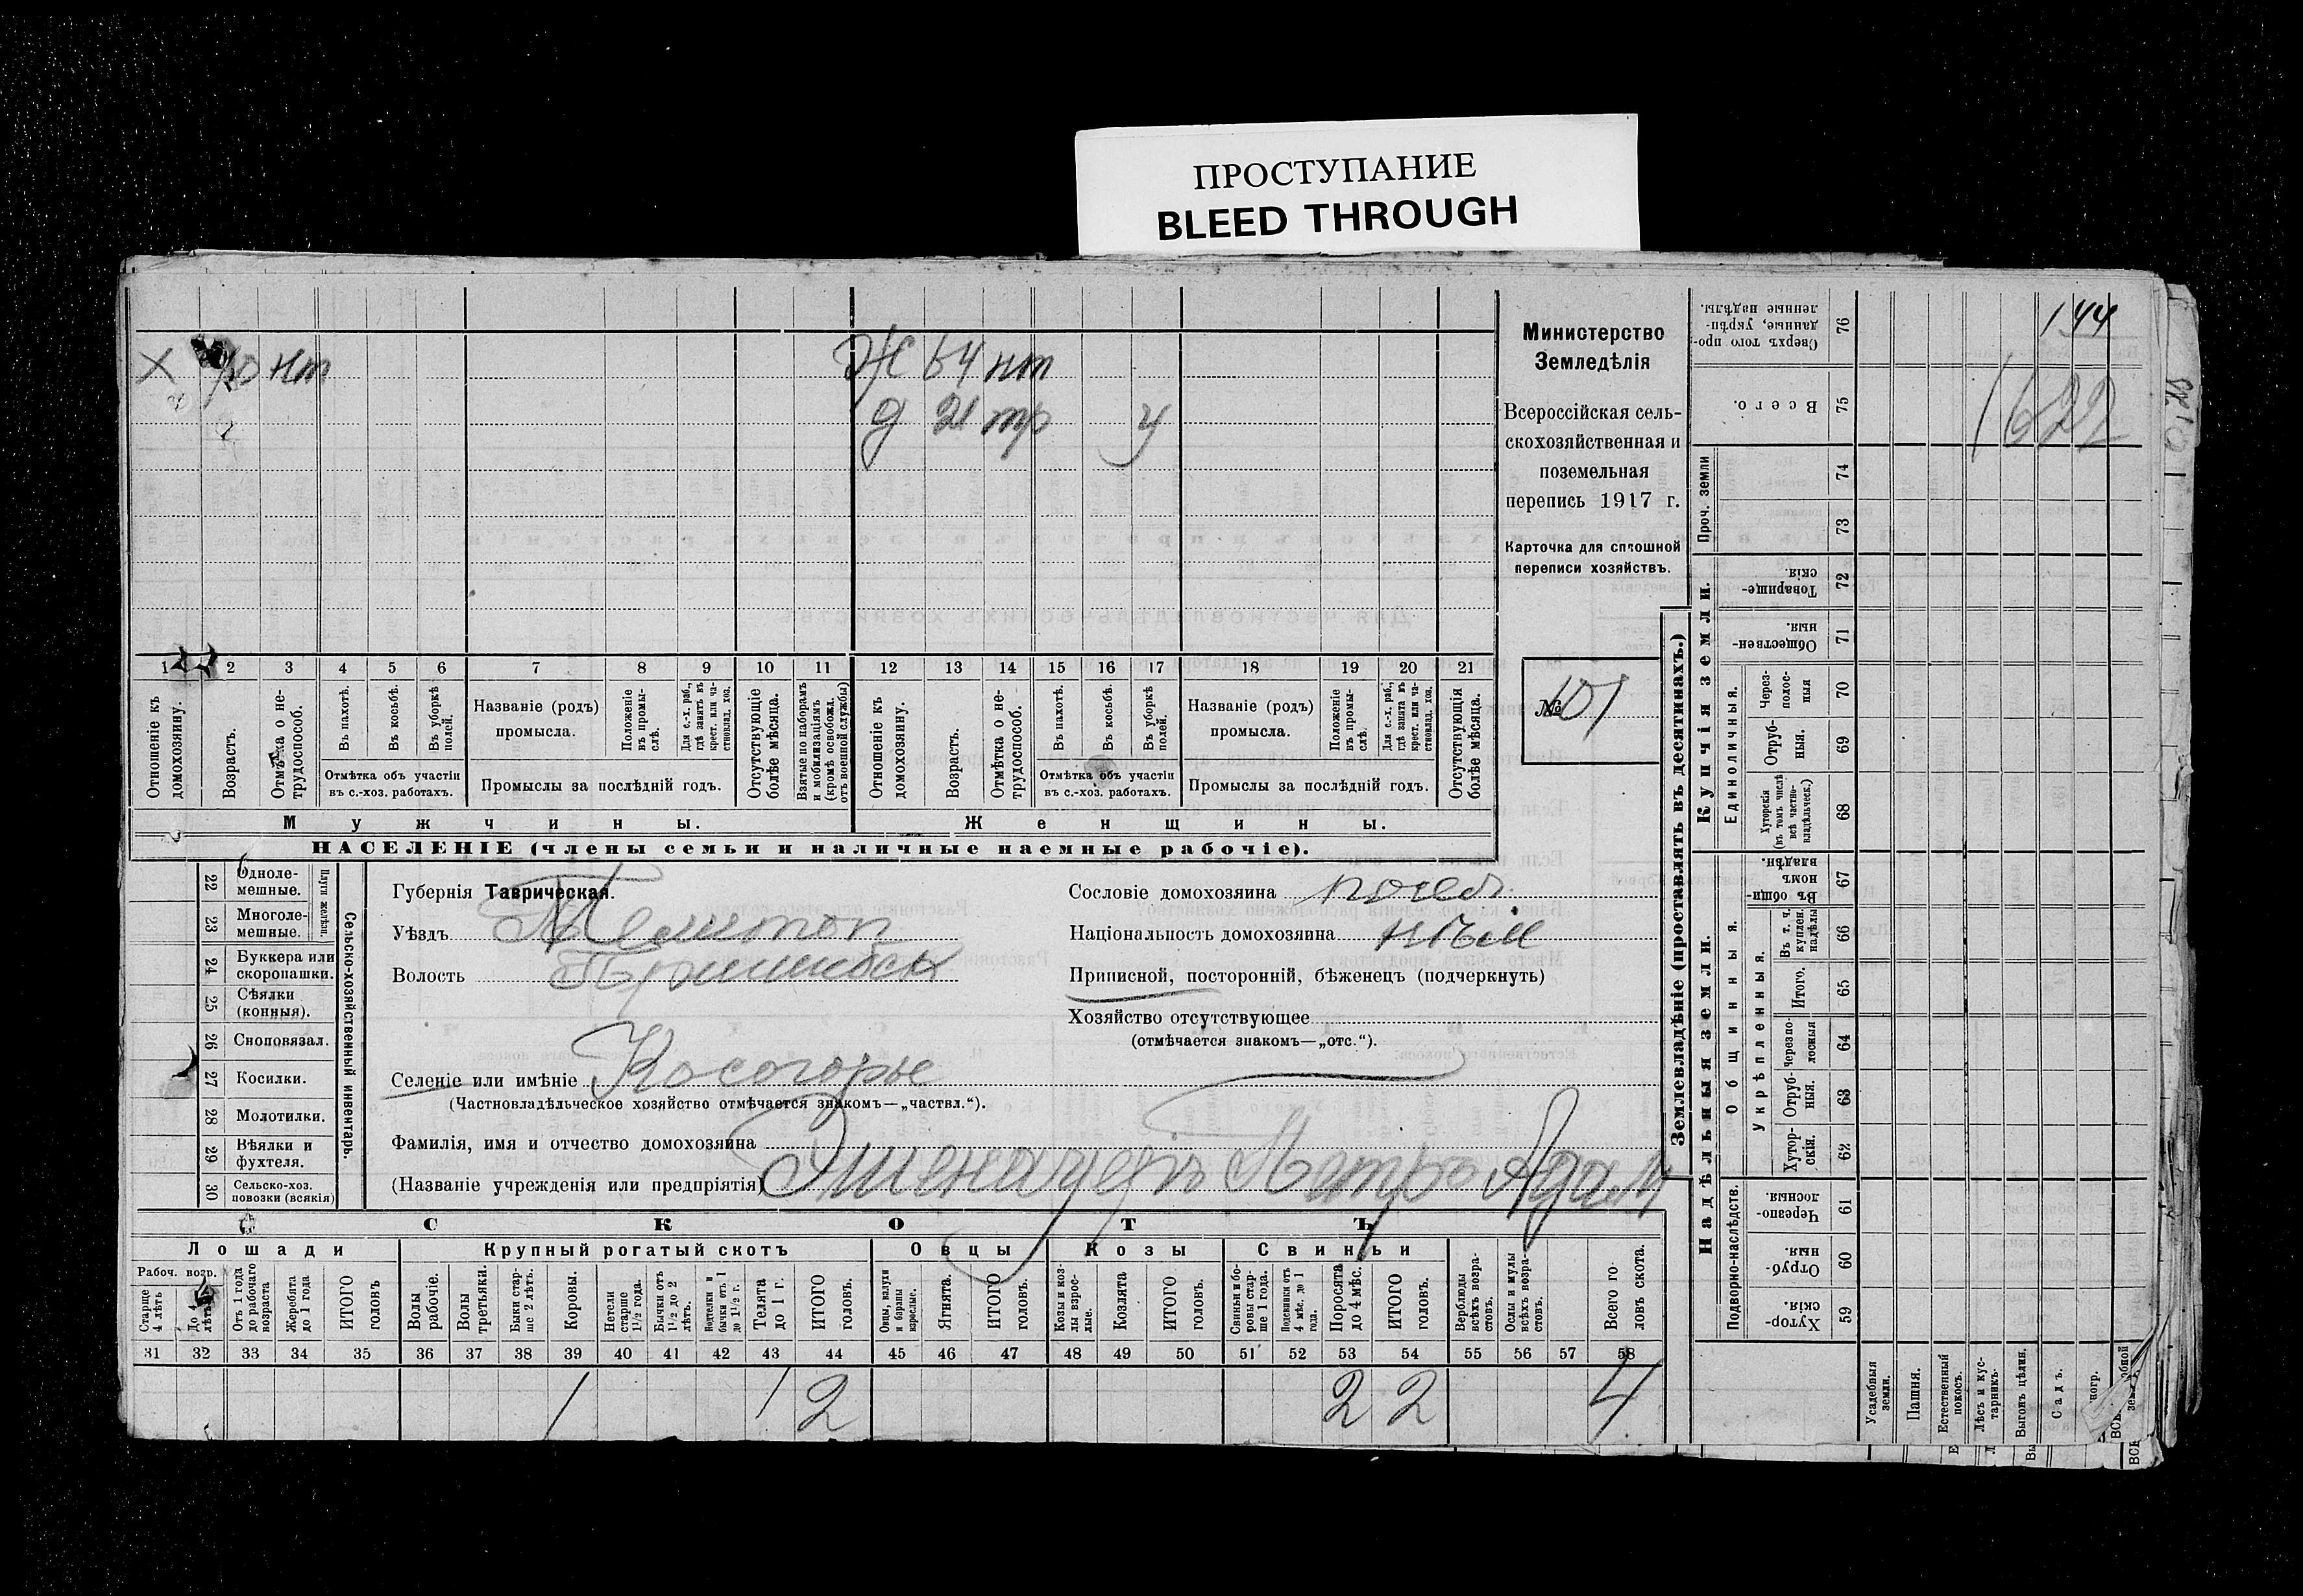 ПРОСТУПАНИЕ
BLEED THROUGH
144
1622
х 70 нт
Ж 64 нт
д 21 тр у
Министерство
Земледѣлія
Всероссійская сель-
скохозяйственная и
поземельная
перепись 1917 г.
Карточка для сплошной
переписи хозяйствъ.
№ 101
1 2 3 4 5 6 7 8 9 10 11 12 13 14 15 16 17 18 19 20 21
Отношеніе къ домохозяину.
Возрастъ.
Отмѣтка о не-трудоспособ.
Въ пахотѣ.
Въ косьбѣ.
Въ уборкѣ полей.
Отмѣтка объ участіи
въ с.-хоз. работахъ.
Названіе (родъ)
промысла.
Положеніе въ промы-слѣ.
Для с.-х. раб., гдѣ занятъ въ крест. или ча-стновлад. хоз.
Промыслы за послѣдній годъ.
Отсутствующіе болѣе мѣсяца.
Взятые по наборамъ и мобилизаціямъ (кромѣ освобожд. отъ военной службы)
Отношеніе къ домохозяину.
Возрастъ.
Отмѣтка о не-трудоспособ.
Въ пахотѣ.
Въ косьбѣ.
Въ уборкѣ полей.
Отмѣтка объ участіи
въ с.-хоз. работахъ.
Названіе (родъ)
промысла.
Положеніе въ промы-слѣ.
Для с.-х. раб., гдѣ занята въ крест. или ча-стновлад. хоз.
Промыслы за послѣдній годъ.
Отсутствующія болѣе мѣсяца.
Мужчины.
Женщины.
НАСЕЛЕНІЕ (члены семьи и наличные наемные рабочіе).
Сельско-хозяйственный инвентарь.
Плуги желѣзн.
22 Одноле-мешные.
23 Многоле-мешные.
24 Буккера или скоропашки.
25 Сѣялки (конныя).
26 Сноповязал.
27 Косилки.
28 Молотилки.
29 Вѣялки и фухтеля.
30 Сельско-хоз. повозки (всякія)
Губернія Таврическая.
Уѣздъ Мелитоп
Волость Пришибск
Селеніе или имѣніе Косогорье
(Частновладѣльческое хозяйство отмѣчается знакомъ—„частвл.“).
Фамилія, имя и отчество домохозяина
(Названіе учрежденія или предпріятія) Петръ Адам
Сословіе домохозяина посел.
Національность домохозяина нѣм
Приписной, посторонній, бѣженецъ (подчеркнуть)
Хозяйство отсутствующее
(отмѣчается знакомъ—„отс.“).
СКОТЪ
Лошади
Крупный рогатый скотъ
Овцы
Козы
Свиньи
Рабоч. возр.
Старше 4 лѣтъ
До 4 лѣтъ
Отъ 1 года до рабочаго возраста
Жеребята до 1 года
ИТОГО головъ
Волы рабочіе.
Волы третьяки.
Быки стар-ше 2 лѣтъ.
Коровы.
Нетели старше 1 1/2 года.
Бычки отъ 1 1/2 до 2 лѣтъ.
Нетелки и бычки отъ 1 до 1 1/2 г.
Телята до 1 г.
ИТОГО головъ.
Овцы, валухи и бараны взрослые.
Ягнята.
ИТОГО головъ.
Козы и коз-лы взрос-лые.
Козлята
ИТОГО головъ.
Свиньи и бо-ровы стар-ше 1 года.
Подсвинки отъ 4 мѣс. до 1 года.
Поросята до 4 мѣс.
ИТОГО головъ.
Верблюды всѣхъ возра-стовъ.
Ослы и мулы всѣхъ возра-стовъ.
Всего го-ловъ скота.
31 32 33 34 35 36 37 38 39 40 41 42 43 44 45 46 47 48 49 50 51 52 53 54 55 56 57 58
1 1 2 2 2 4
Землевладѣніе (проставлять въ десятинахъ.)
Купчія земли.
Надѣльныя земли.
Сверхъ того про-данные, укрѣп-ленные надѣлы. 76
Всего. 75
Проч. земли
74
73
Товарище-скія. 72
Обществен-ныя. 71
Единоличныя.
Через-полос-ныя 70
Отруб-ныя. 69
Хуторскія (въ томъ числѣ всѣ частно-владѣльческ.) 68
Общинныя.
Въ общи-номъ владѣн. 67
Укрѣпленныя.
Въ т. ч. куплен. надѣлы 66
Итого. 65
Черезпо-лосныя 64
Отруб-ныя. 63
Хутор-скія. 62
Подворно-наслѣдств.
Черезпо-лосныя. 61
Отруб-ныя. 60
Хутор-скія. 59
Усадебныя земли.
Пашня.
Естественный покосъ.
Лѣсъ и кус-тарникъ.
Выгонъ цѣлин.
Садъ.